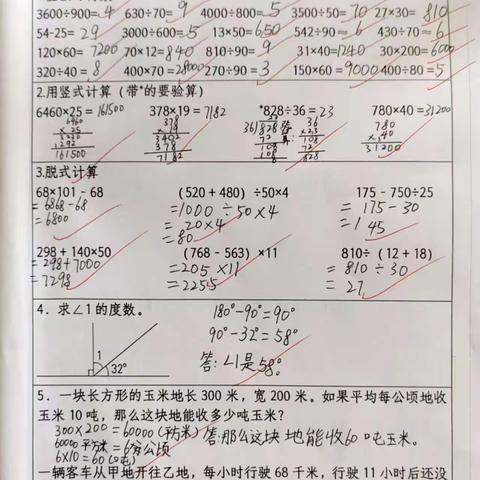 3600÷900=4 630÷70=9 4000÷800=5 3500÷50=70 27×30=810
54-25=29 3000÷600=5 13×50=650 542÷90≈6 430÷70≈6
120×60=7200 70×12=840 810÷90=9 31×40=1240 30×200=6000
320÷40=8 400×70=28000 270÷90=3 150×60=9000 400÷80=5
2.用竖式计算（带*的要验算）
6460×25=161500 378×19=7182 *828÷36=23 780×40=31200
3.脱式计算
68×101-68 (520+480)÷50×4 175-750÷25
=6868-68 =1000÷50×4 =175-30
=6800 =20×4 =145
=80
298+140×50 (768-563)×11 810÷(12+18)
=298+7000 =205×11 =810÷30
=7298 =2255 =27
4.求∠1的度数。
180°-90°=90°
90°-32°=58°
1 32°
答:∠1是58°
5.一块长方形的玉米地长300米，宽200米。如果平均每公顷地收
玉米10吨，那么这块地能收多少吨玉米？
300×200=60000(平方米) 答:那么这块地能收60吨玉米。
60000平方米=6公顷
6×10=60(吨)
一辆客车从甲地开往乙地，每小时行驶68千米，行驶11小时后还没